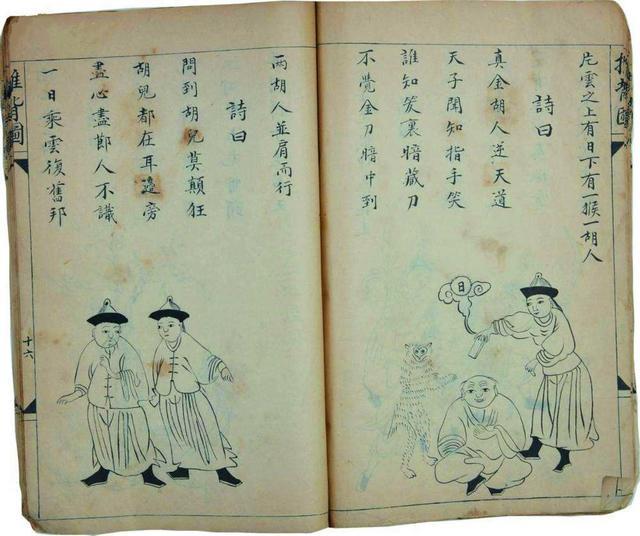 片雲之上有日下有一猴一胡人
詩曰
真金胡人逆天道
天子聞知指手笑
誰知笑裏暗藏刀
不覺金刀暗中到
日
推背圖
兩胡人並肩而行
詩曰
問到胡兒莫顛狂
胡兒都在耳邊旁
盡心盡節人不識
一日乘雲復舊邦
推背圖
十六